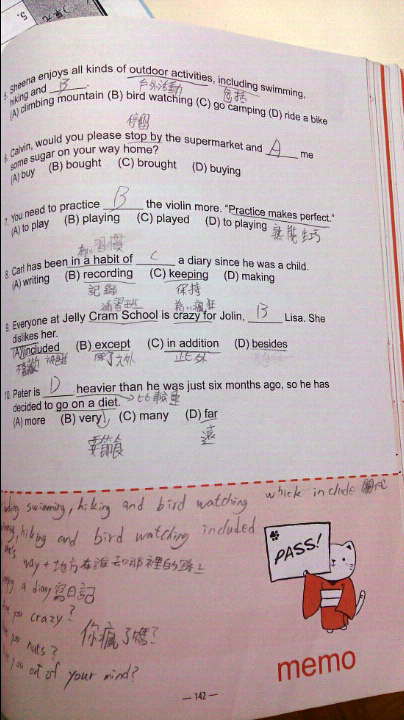 5.
5. Sheena enjoys all kinds of outdoor activities, including swimming,
戶外活動 包括
hiking and B.
(A) climbing mountain (B) bird watching (C) go camping (D) ride a bike
停留
6. Calvin, would you please stop by the supermarket and A me
some sugar on your way home?
(A) buy (B) bought (C) brought (D) buying
7. You need to practice B the violin more. "Practice makes perfect."
熟能生巧
(A) to play (B) playing (C) played (D) to playing
習慣
8. Carl has been in a habit of C a diary since he was a child.
(A) writing (B) recording (C) keeping (D) making
記錄 保持
補習班 為 瘋狂
9. Everyone at Jelly Cram School is crazy for Jolin, B Lisa. She
dislikes her.
(A) included (B) except (C) in addition (D) besides
除了 之外 此外
10. Peter is D heavier than he was just six months ago, so he has
比較級
decided to go on a diet.
(A) more (B) very (C) many (D) far
節食 遠
swimming, hiking and bird watching which include
hiking and bird watching included
way + 地方
a diary 寫日記
you crazy?
你瘋了嗎?
nuts?
out of your mind?
PASS!
memo
— 142 —